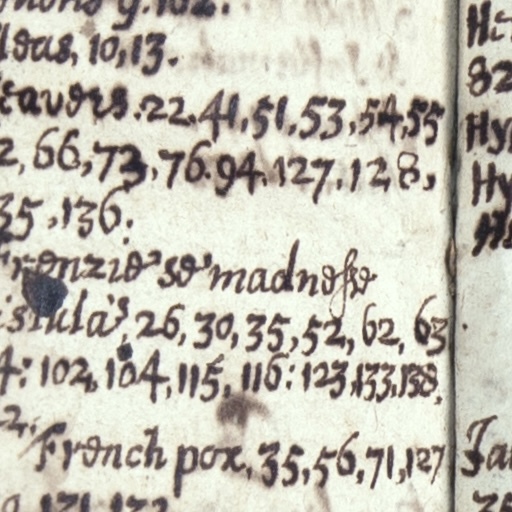 g. 102.
10, 13.
22, 41, 51, 53, 54, 55
2, 66, 73, 76. 94. 127. 128,
35, 136.
Frenzie se madnesse
istula's, 26, 30, 35, 52, 62, 63
4: 102, 104, 115, 116: 123, 133, 138,
2.
French pox, 35, 56, 71, 127
9, 131, 132
82
Hy
Hy
35